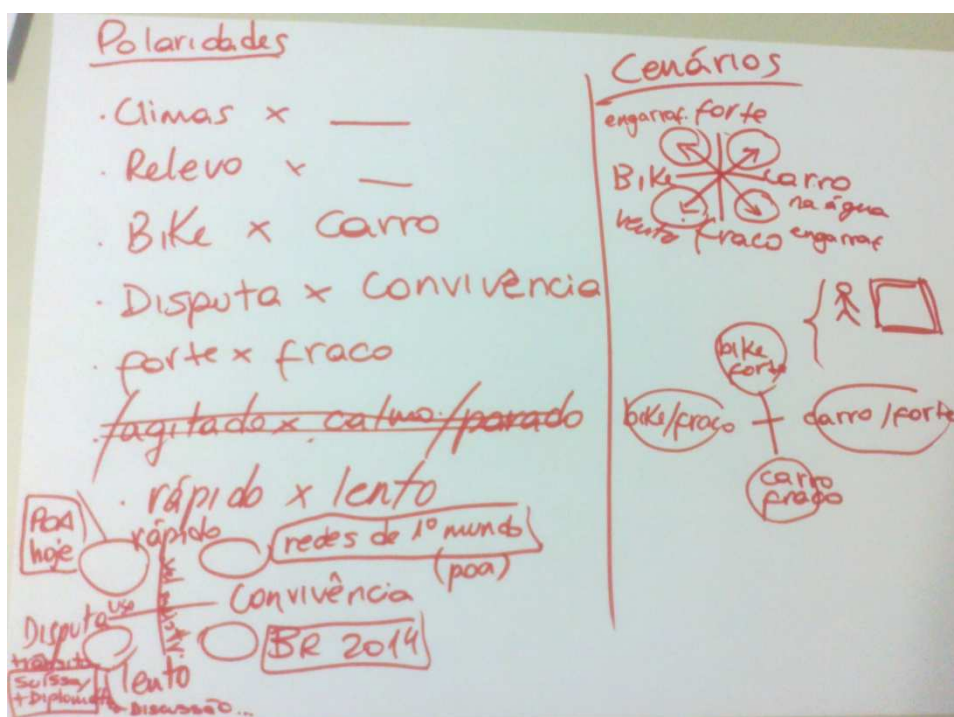 Polaridades
· Climas x __
· Relevo x __
· Bike x Carro
· Disputa x Convivência
· forte x fraco
/agitado x calmo/parado
· rápido x lento
POA hoje
rápido
redes de 1º mundo
(poa)
Convivência
Disputa
BR 2014
trânsito
lento
Suíssa/
+Diplomata
+ Discussão...
Cenários
engarraf. forte
Bike carro
na água
vento fraco engarraf
bike
forte
bike/fraco
carro/forte
carro
fraco